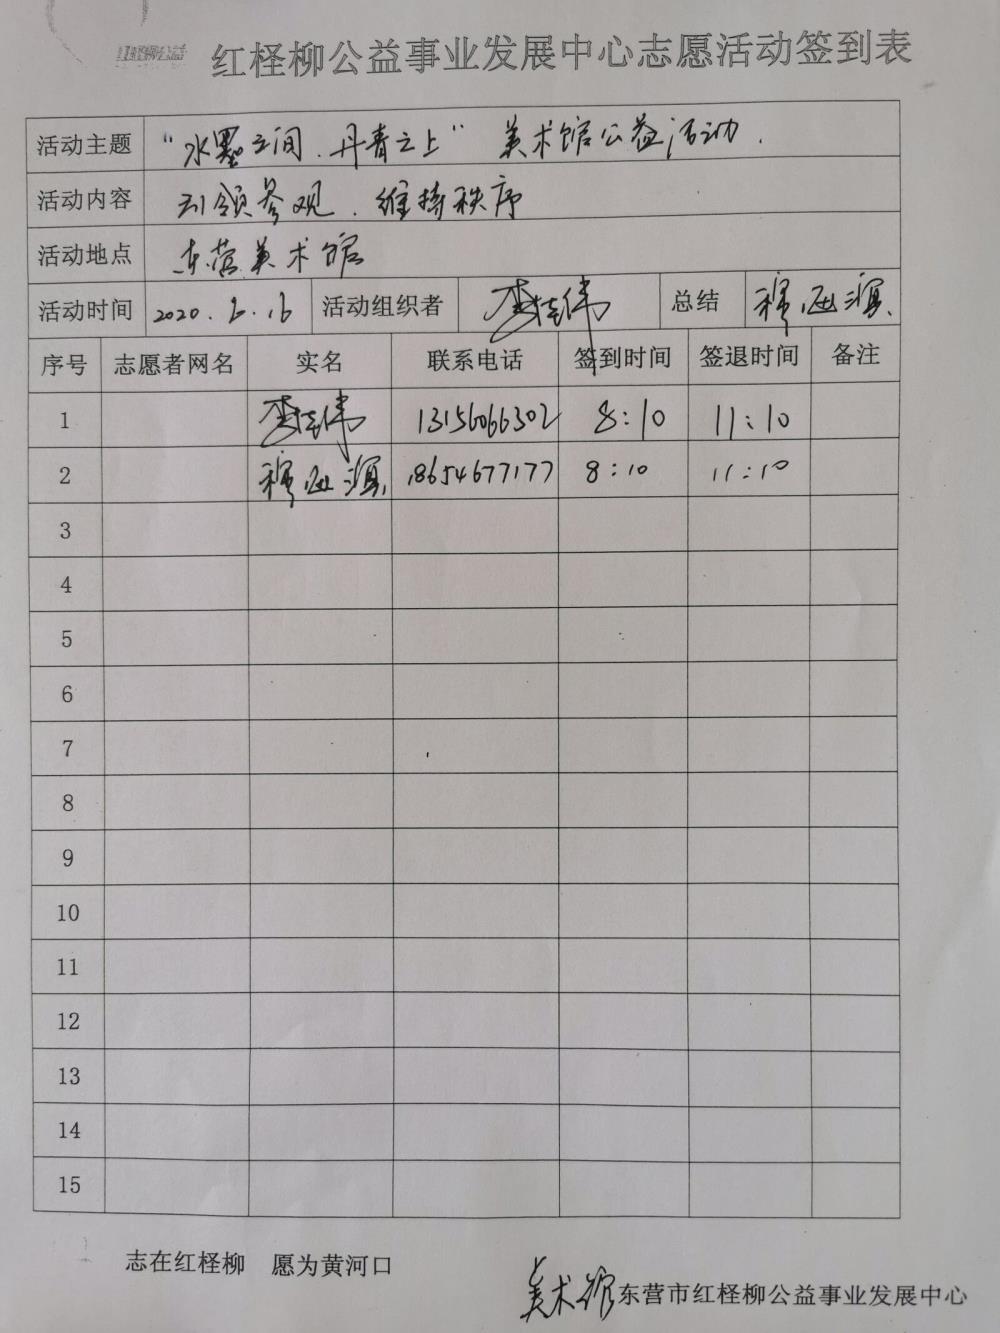 红柽柳公益 红柽柳公益事业发展中心志愿活动签到表
活动主题 "水墨之间.丹青之上" 美术馆公益活动.
活动内容 引领参观.维持秩序
活动地点 东营美术馆
活动时间 2020.6.16 活动组织者 李佳伟 总结
序号 志愿者网名 实名 联系电话 签到时间 签退时间 备注
1 李佳伟 13156066302 8:10 11:10
2 18654677177 8:10 11:10
3
4
5
6
7
8
9
10
11
12
13
14
15
志在红柽柳 愿为黄河口
美术馆 东营市红柽柳公益事业发展中心